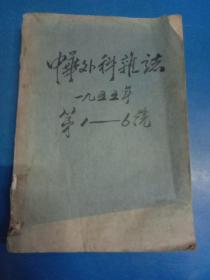 中華外科雜誌
一九五五年
第1——6號